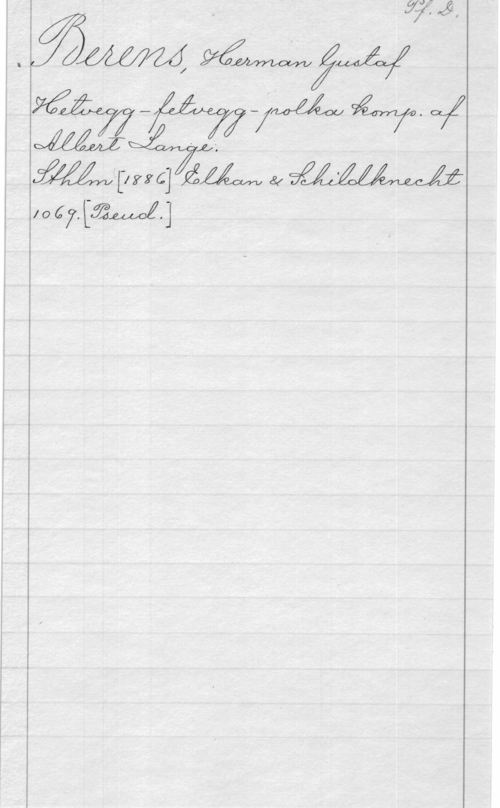 Pf. D.
Berens, Herman Gustaf
Hetvegg-fetvegg-polka komp. af
Albert Lange.
Sthlm [1886] Elkan & Schildknecht
1069. [Pseud.]